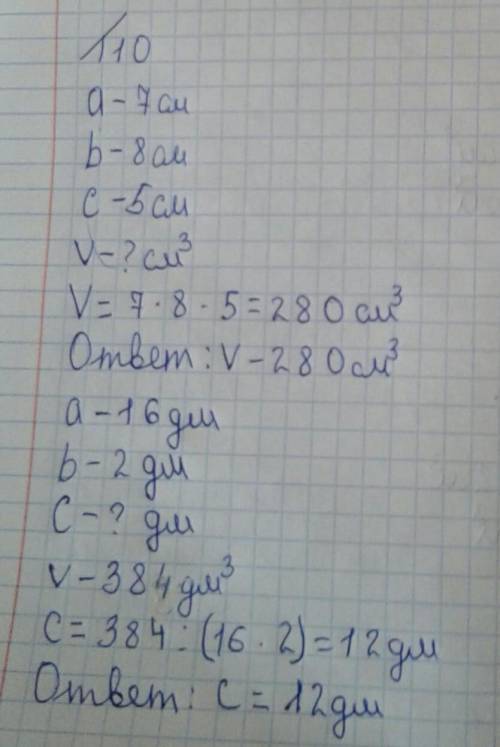 110
a - 7 см
b - 8 см
c - 5 см
V - ? см³
V = 7 · 8 · 5 = 280 см³
Ответ : V - 280 см³
a - 16 дм
b - 2 дм
C - ? дм
V - 384 дм³
C = 384 : (16 · 2) = 12 дм
Ответ : C = 12 дм